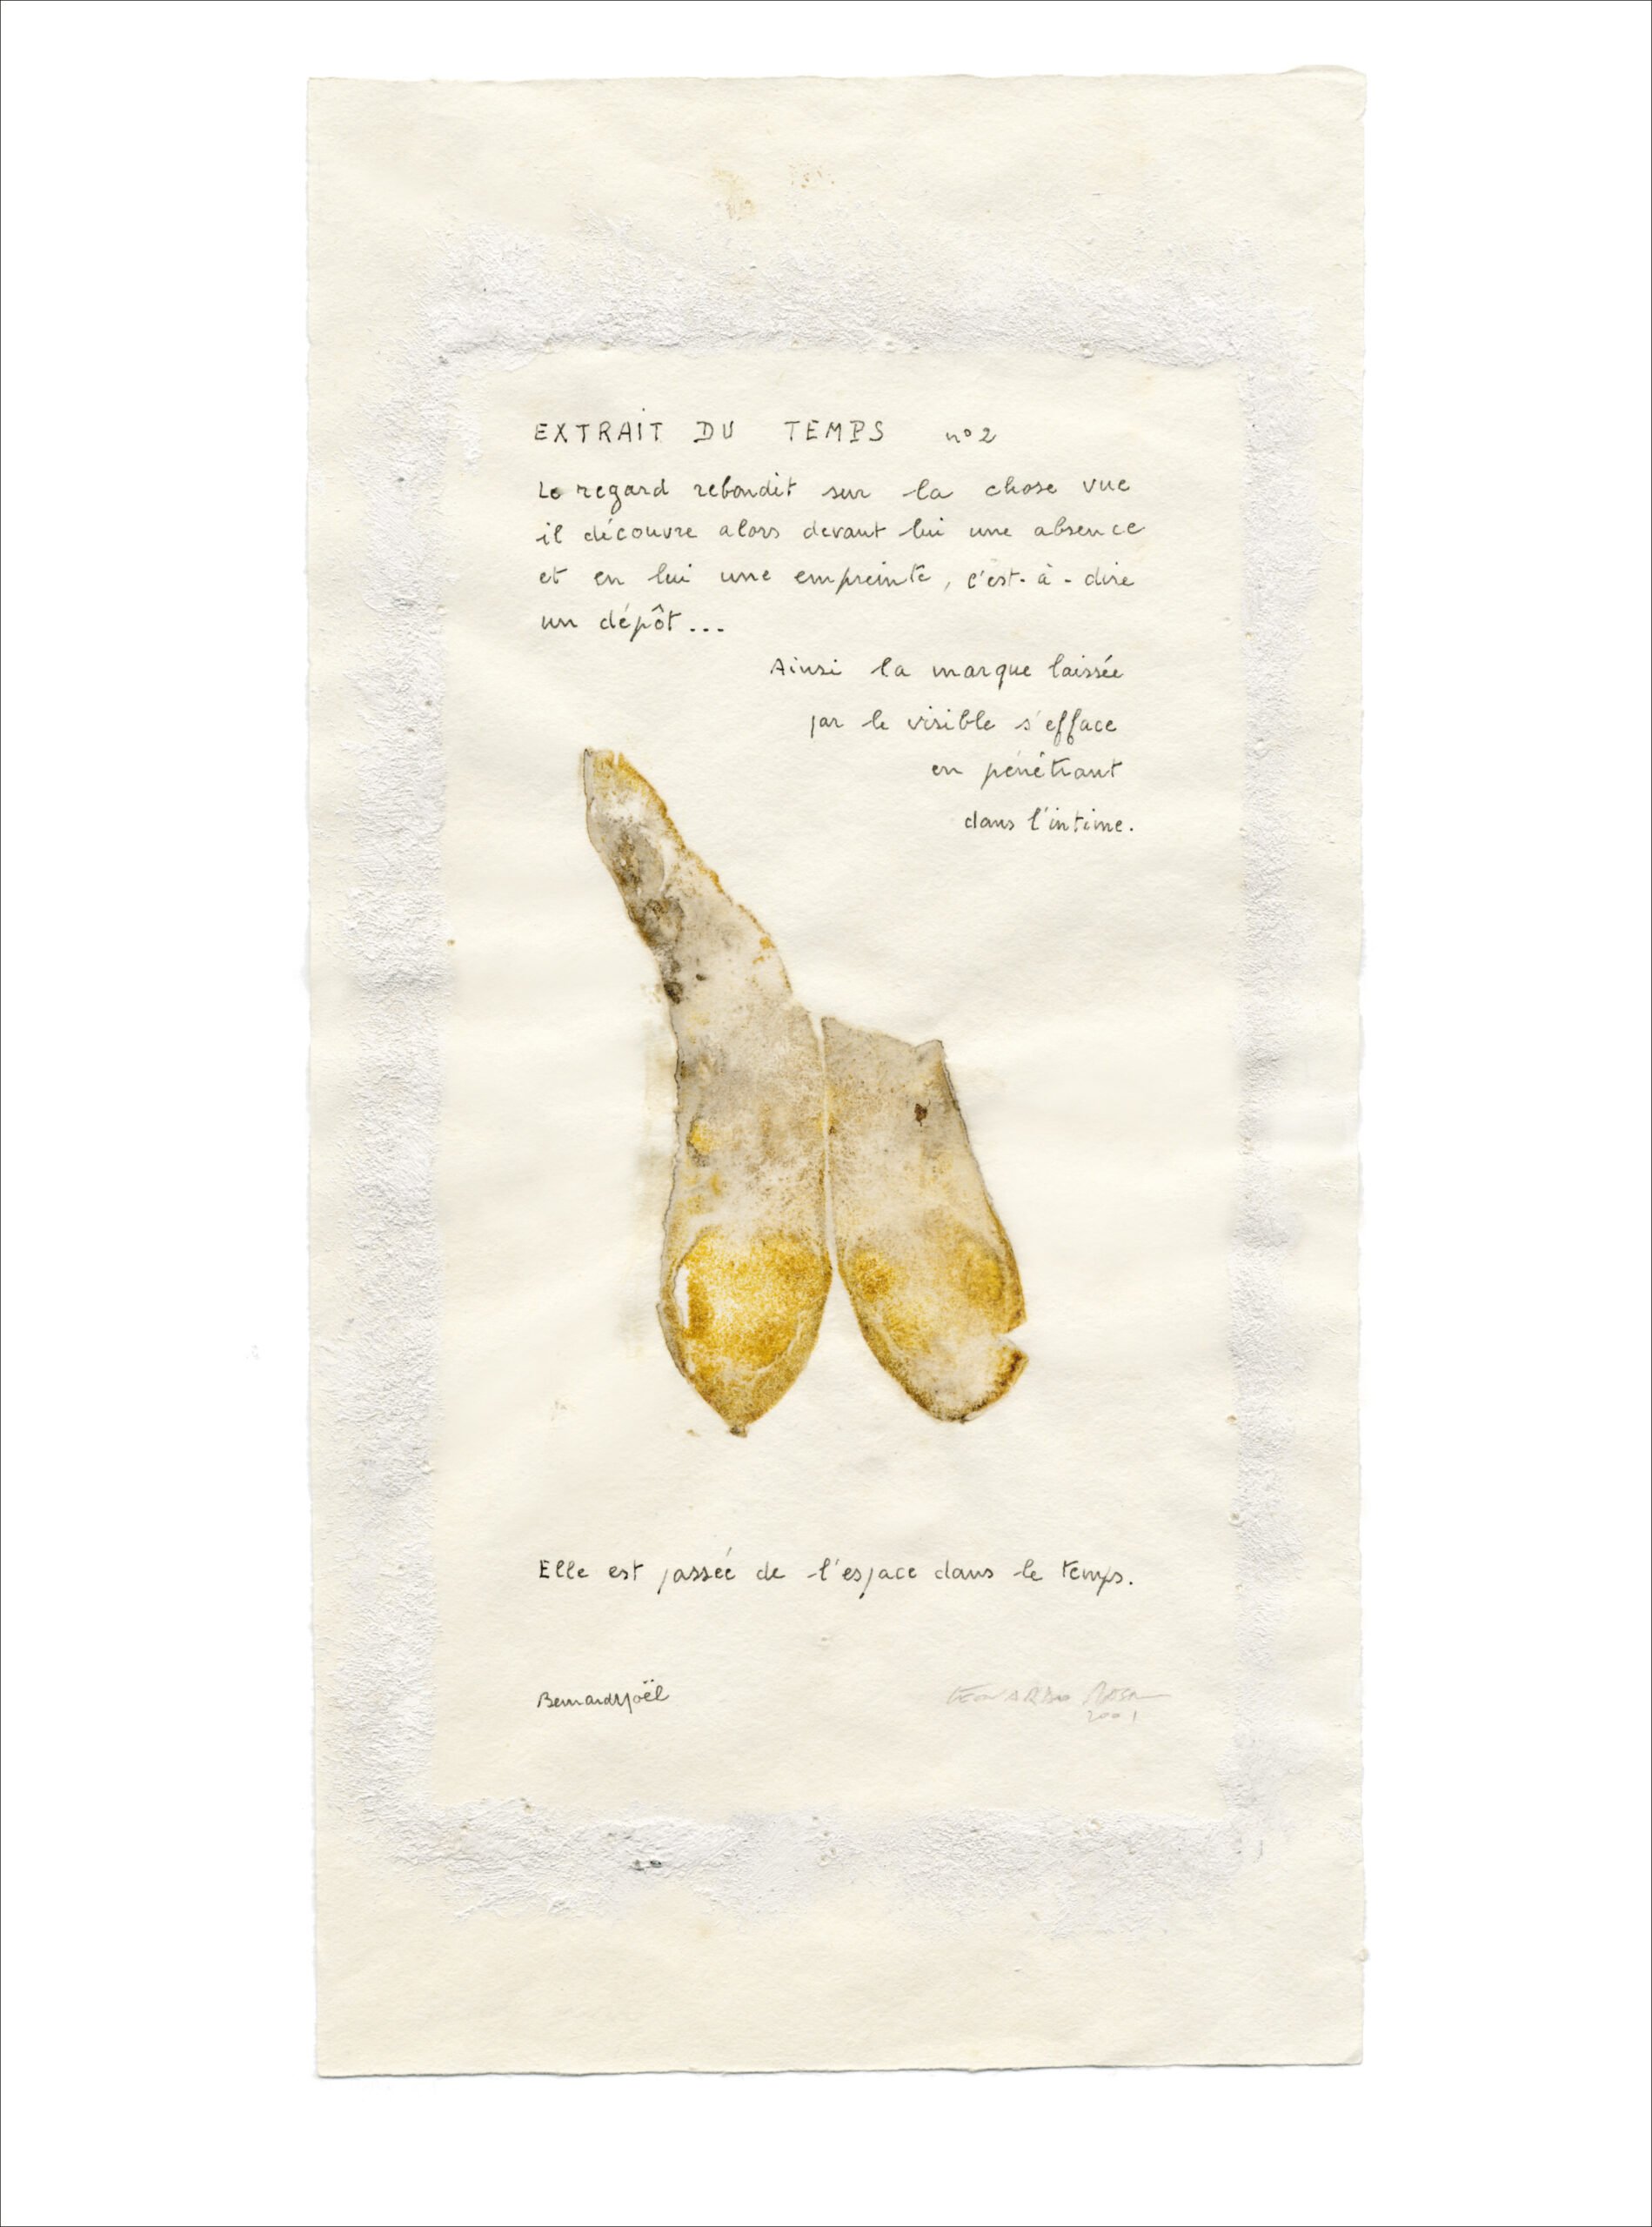 EXTRAIT DU TEMPS n° 2
Le regard rebondit sur la chose vue
il découvre alors devant lui une absence
et en lui une empreinte, c'est-à-dire
un dépôt...
Ainsi la marque laissée
par le visible s'efface
en pénétrant
dans l'intime.
Elle est passée de l'espace dans le temps.
Bernard Noël
LEONARDO ROSA
2001